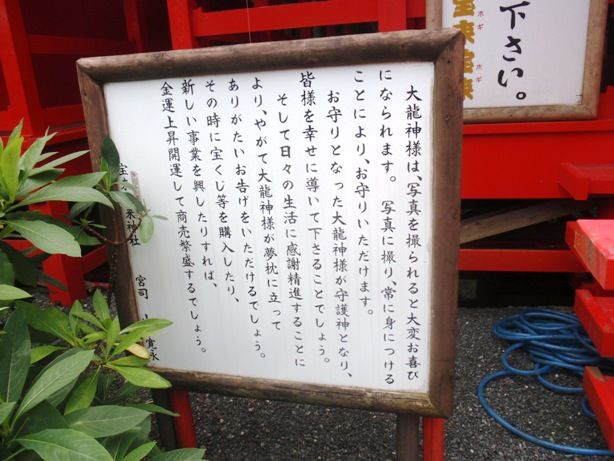 大龍神様は、写真を撮られると大変お喜び
になられます。 写真に撮り、常に身につける
ことにより、お守りいただけます。
お守りとなった大龍神様が守護神となり、
皆様を幸せに導いて下さることでしょう。
そして日々の生活に感謝精進することに
より、やがて大龍神様が夢枕に立って
ありがたいお告げをいただけるでしょう。
その時に宝くじ等を購入したり、
新しい事業を興したりすれば、
金運上昇開運して商売繁盛するでしょう。
宝 来神社
宮司
下さい。
ホギ ホギ